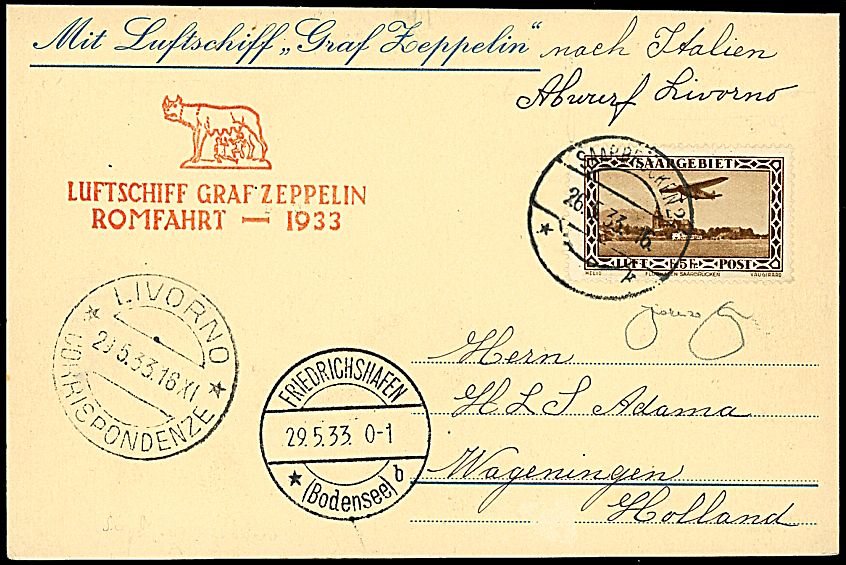 Mit Luftschiff „Graf Zeppelin“ nach Italien
Abwurf Livorno
LUFTSCHIFF GRAF ZEPPELIN
ROMFAHRT — 1933
SAARBRÜCKEN 2
26. 33. 16.
SAARGEBIET
LUFT 5 Fr. POST
HELIO FLUGHAFEN SAARBRÜCKEN VAUGIRARD
LIVORNO
29.5.33.16 XI
CORRISPONDENZE
FRIEDRICHSHAFEN
29.5.33. 0-1
(Bodensee) b
Hern
H L S Adama
Wageningen
Holland